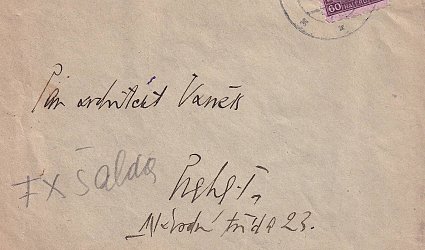 60
Pan architekt Vaněk
FX Šalda
Praha-I,
Národní třída 23.